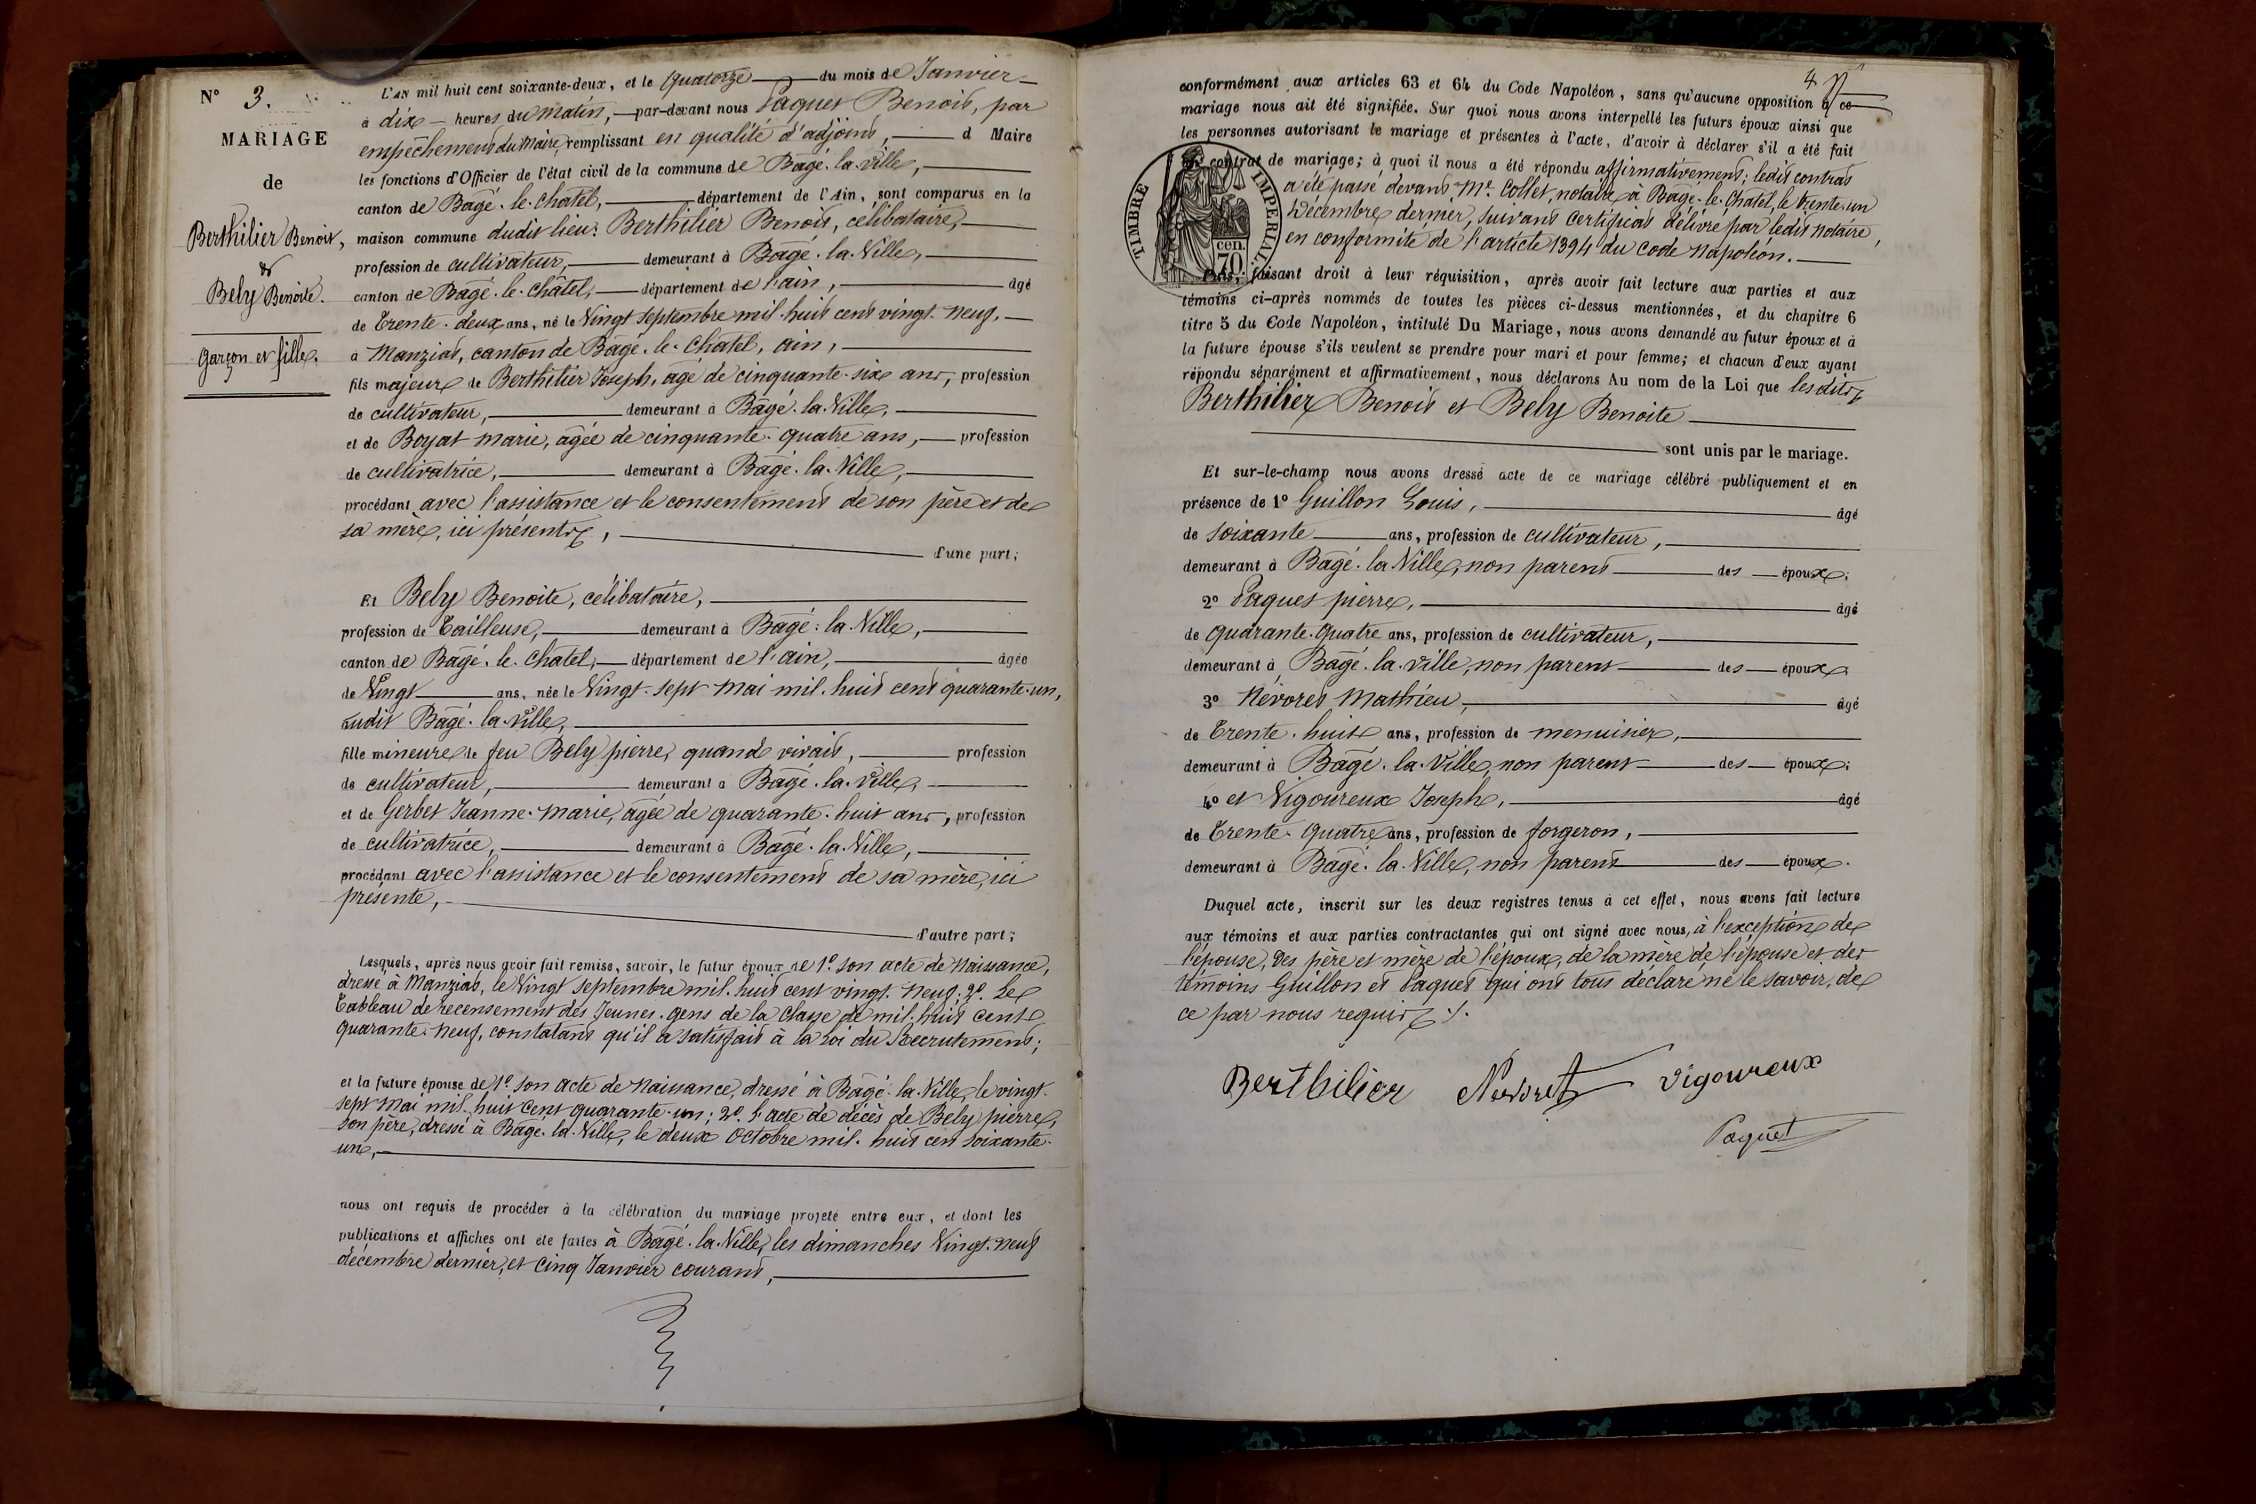 N° 3.
MARIAGE
de
Berthilier Benoit,
&
Bely Benoite.
Garçon et fille.
L'AN mil huit cent soixante-deux, et le Quatorze du mois de Janvier
à dix heures du matin, par-devant nous Paquet Benoit, par
empêchement du Maire, remplissant en qualité d'adjoint, d Maire
les fonctions d'Officier de l'état civil de la commune de Bâgé-la-Ville,
canton de Bâgé-le-Chatel, département de l'Ain, sont comparus en la
maison commune dudit lieu: Berthilier Benoit, célibataire,
profession de cultivateur, demeurant à Bâgé-la-Ville,
canton de Bâgé-le-Châtel, département de l'ain, âgé
de Trente-deux ans, né le Vingt Septembre mil-huit cent vingt-neuf,
à Manziat, canton de Bâgé-le-Chatel, ain,
fils majeur de Berthilier Joseph, âgé de cinquante-six ans, profession
de cultivateur, demeurant à Bâgé-la-Ville,
et de Boyat Marie, âgée de cinquante-quatre ans, profession
de cultivatrice, demeurant à Bâgé-la-Ville,
procédant avec l'assistance et le consentement de son père et de
sa mère, ici présents, d'une part;
Et Bely Benoite, célibataire,
profession de Tailleuse, demeurant à Bâgé-la-Ville,
canton de Bâgé-le-Chatel, département de l'ain, âgée
de Vingt ans, née le Vingt-sept Mai mil-huit cent quarante-un,
audit Bâgé-la-Ville,
fille mineure de feu Bely pierre, quand vivait, profession
de cultivateur, demeurant à Bâgé-la-Ville,
et de Gerbet Jeanne-Marie, âgée de quarante-huit ans, profession
de cultivatrice, demeurant à Bâgé-la-Ville,
procédant avec l'assistance et le consentement de sa mère, ici
présente, d'autre part;
Lesquels, après nous avoir fait remise, savoir, le futur époux de 1° son acte de Naissance,
dressé à Manziat, le Vingt Septembre mil-huit cent vingt-neuf; 2° Le
Tableau de recensement des Jeunes-gens de la Classe de mil-huit cent
quarante-neuf, constatant qu'il a satisfait à la Loi du Recrutement;
et la future épouse de 1° son acte de Naissance, dressé à Bâgé-la-Ville, le vingt-
sept Mai mil-huit cent quarante-un; 2° l'acte de décès de Bely pierre,
son père, dressé à Bâgé-la-Ville, le deux Octobre mil-huit cent soixante-
un,
nous ont requis de procéder à la célébration du mariage projeté entre eux, et dont les
publications et affiches ont été faites à Bâgé-la-Ville, les dimanches Vingt-neuf
décembre dernier, et Cinq Janvier courant,
4
conformément aux articles 63 et 64 du Code Napoléon, sans qu'aucune opposition à ce
mariage nous ait été signifiée. Sur quoi nous avons interpellé les futurs époux ainsi que
les personnes autorisant le mariage et présentes à l'acte, d'avoir à déclarer s'il a été fait
un contrat de mariage; à quoi il nous a été répondu affirmativement; ledit contrat
a été passé devant Mr. Collet, notaire à Bâgé-le-Chatel, le trente-un
Décembre dernier, suivant certificat délivré par ledit notaire,
en conformité de l'article 1394 du Code Napoléon.
TIMBRE IMPERIAL
70 cen.
Puis, faisant droit à leur réquisition, après avoir fait lecture aux parties et aux
témoins ci-après nommés de toutes les pièces ci-dessus mentionnées, et du chapitre 6
titre 5 du Code Napoléon, intitulé Du Mariage, nous avons demandé au futur époux et à
la future épouse s'ils veulent se prendre pour mari et pour femme; et chacun d'eux ayant
répondu séparément et affirmativement, nous déclarons Au nom de la Loi que lesdits
Berthilier Benoit et Bely Benoite
sont unis par le mariage.
Et sur-le-champ nous avons dressé acte de ce mariage célébré publiquement et en
présence de 1° Guillon Louis, âgé
de soixante ans, profession de cultivateur,
demeurant à Bâgé-la-Ville, non parent des époux;
2° Paquet pierre, âgé
de quarante-quatre ans, profession de cultivateur,
demeurant à Bâgé-la-Ville, non parent des époux
3° Névoret Mathieu, âgé
de Trente-huit ans, profession de menuisier,
demeurant à Bâgé-la-Ville, non parent des époux;
4° et Vigoureux Joseph, âgé
de Trente-quatre ans, profession de forgeron,
demeurant à Bâgé-la-Ville, non parent des époux.
Duquel acte, inscrit sur les deux registres tenus à cet effet, nous avons fait lecture
aux témoins et aux parties contractantes qui ont signé avec nous, à l'exception de
l'épouse, des père et mère de l'époux, de la mère de l'épouse et des
témoins Guillon et Paquet qui ont tous déclaré ne le savoir, de
ce par nous requis.
Berthilier Nevoret Vigoureux
Paquet